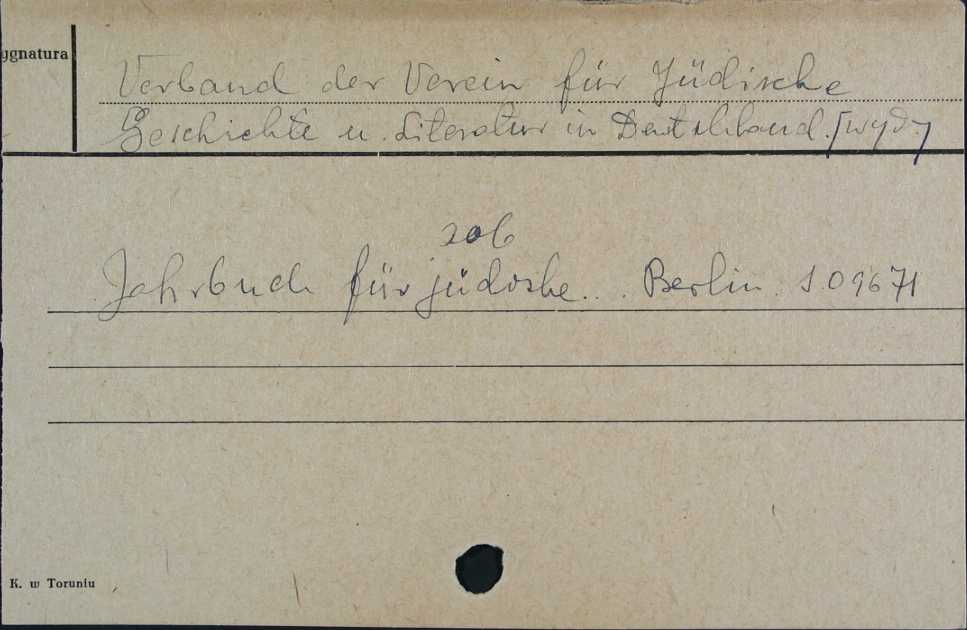 ygnatura
Verband der Verein für Jüdische
Geschichte u. Literatur in Deutschland. [wyd.]
zob
Jahrbuch für jüdische... Berlin. S.09671
K. w Toruniu